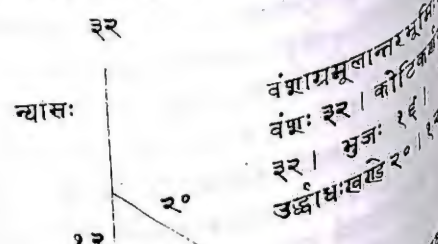 ३२
न्यासः
वंशाग्रमूलान्तरभूमिः
वंशः ३२ । कोटिकर्ण
३२ । भुजः १६ ।
उर्द्धाधःखण्डे २० । १२
२०
१२